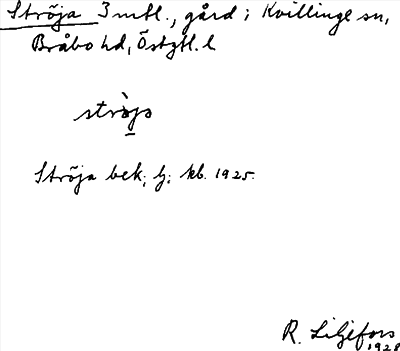 Ströja 3 mtl., gård i Kvillinge sn,
Bråbo hd, Östgtl. l
ströja
Ströja bek. lj. kb. 1925.
R. Liljefors
1928